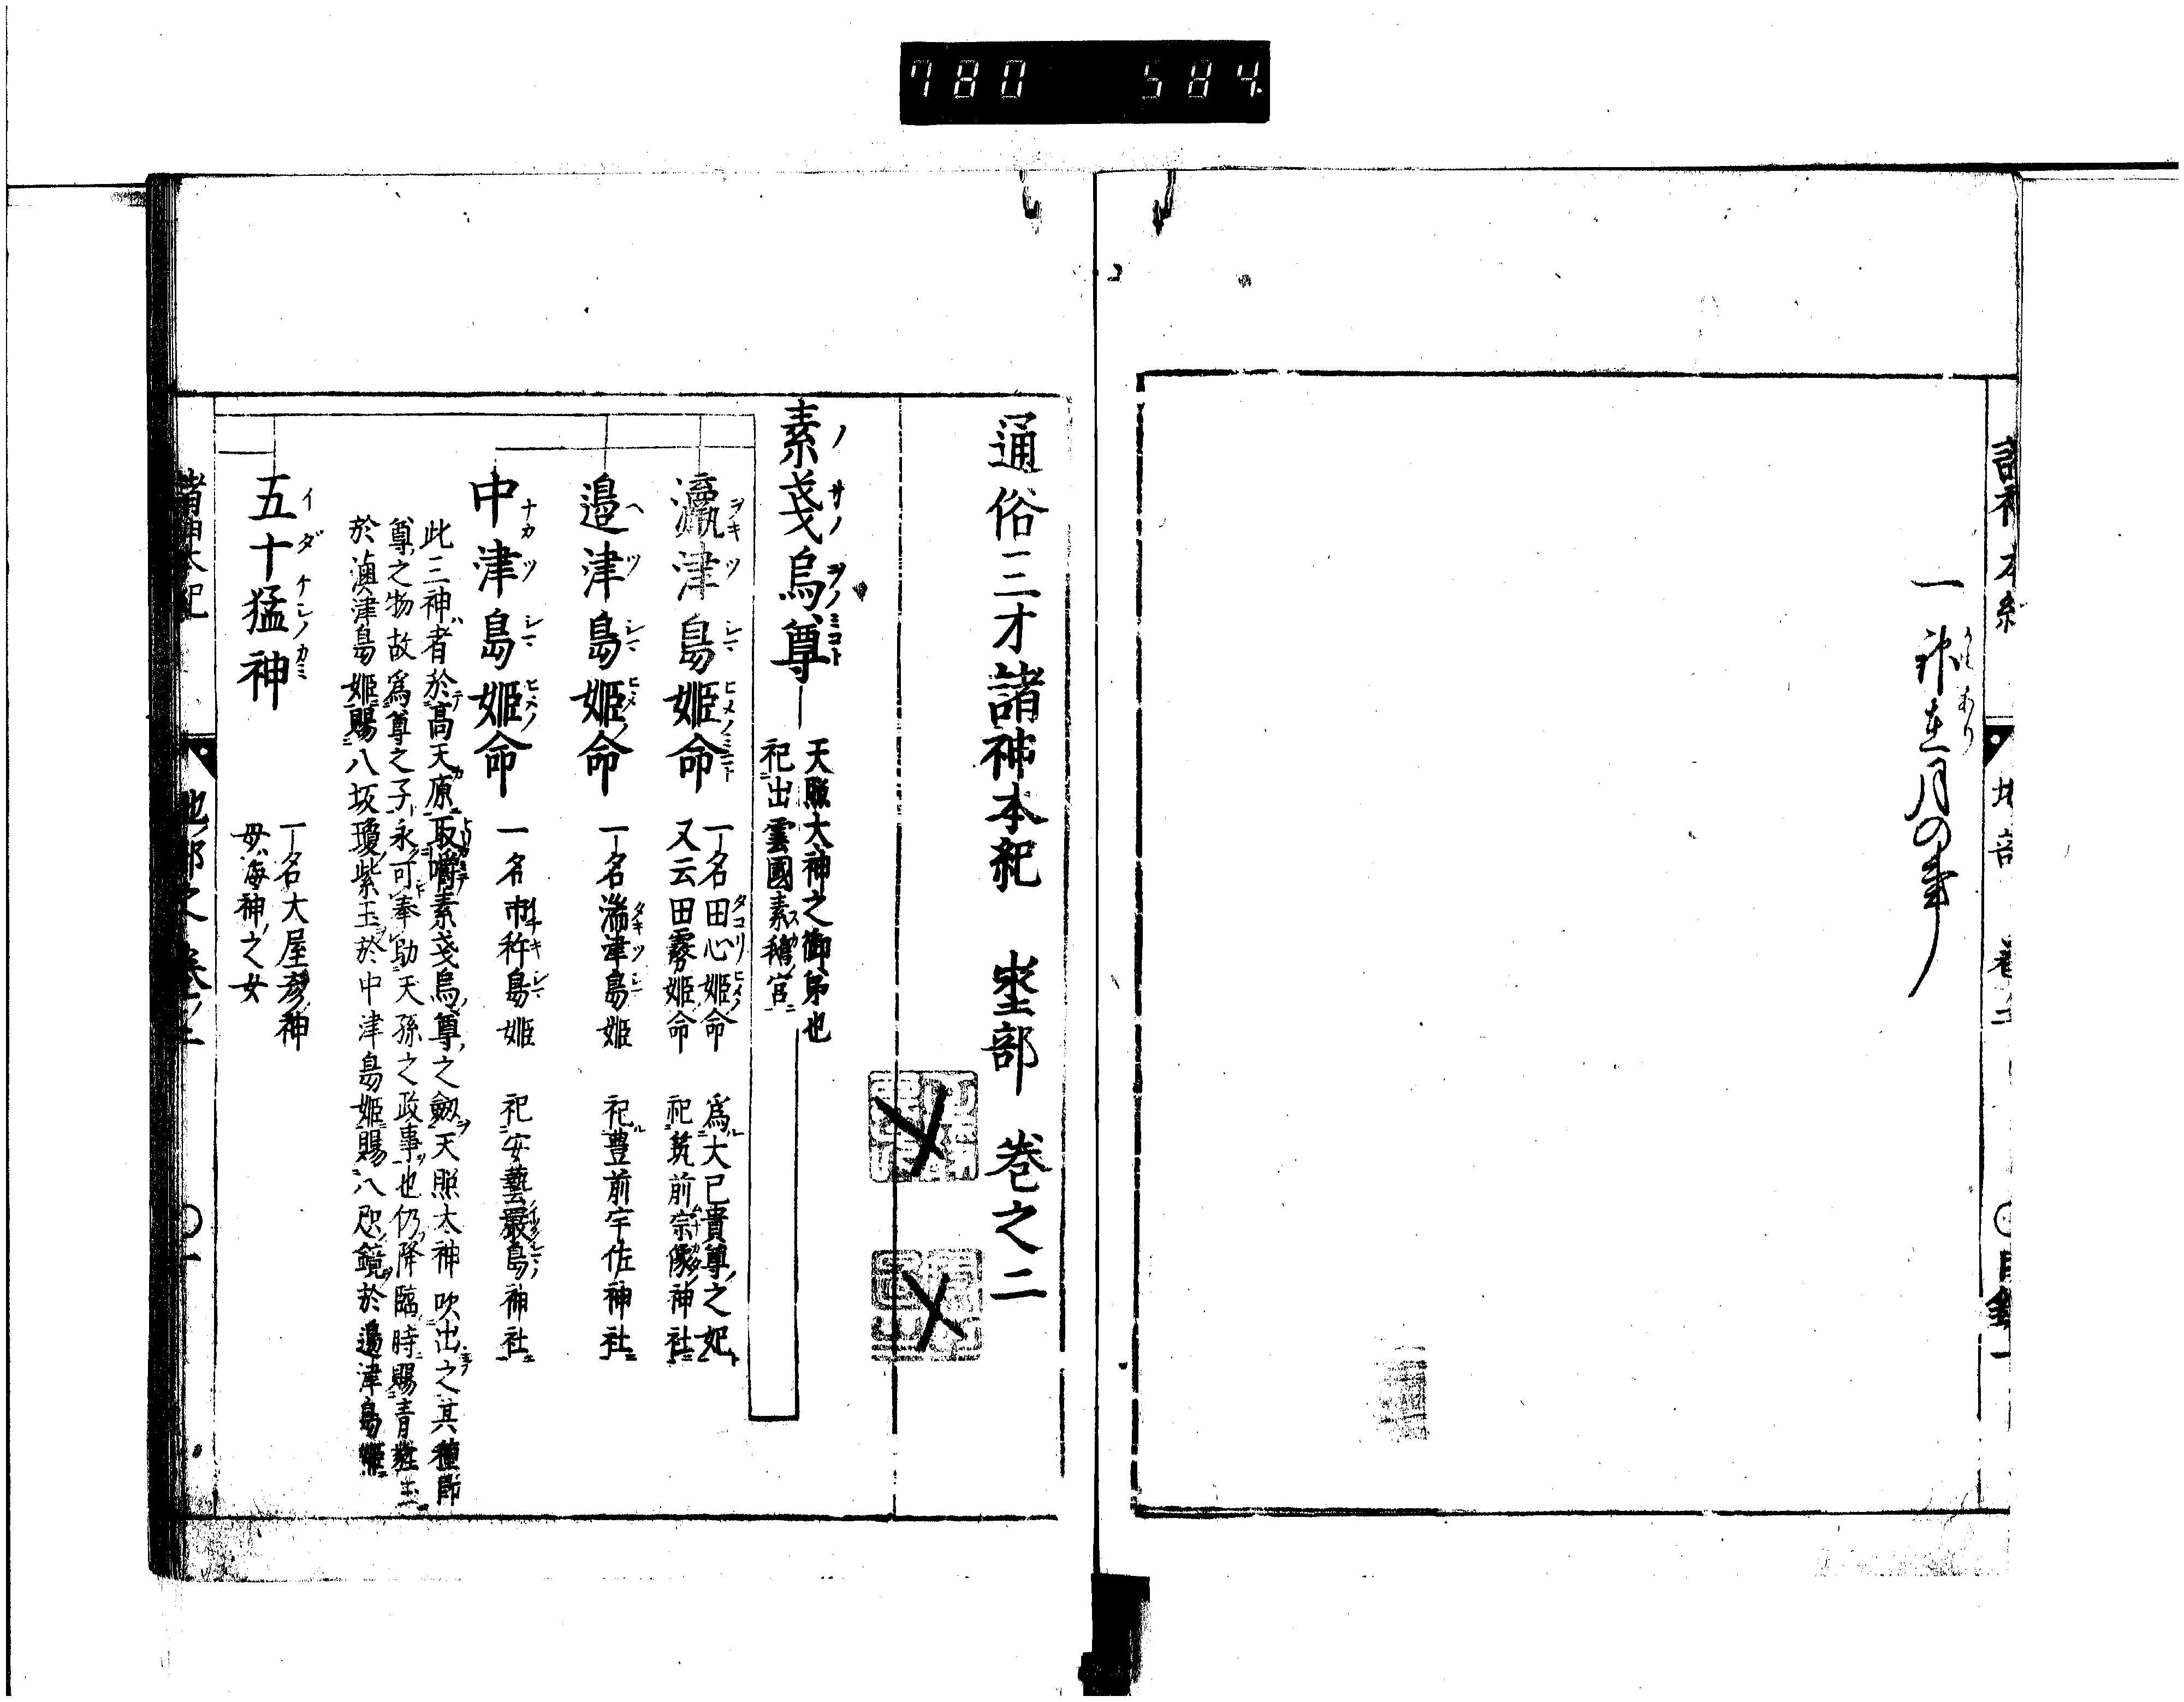 780 584
一 神在月の事
通俗三才諸神本紀 坔部 巻之二
素戔烏尊
天照大神之御弟也
祀出雲國素鵞宮
瀛津島姫命
一名田心姫命 為大己貴尊之妃
又云田霧姫命 祀筑前宗像神社
邉津島姫命
一名湍津島姫 祀豊前宇佐神社
中津島姫命
一名市杵島姫 祀安藝嚴島神社
此三神者於高天原取嚼素戔烏尊之劔天照太神吹出之其種即
尊之物故為尊之子永可奉助天孫之政事也仍降臨時賜青蕤玉
於瀛津島姫賜八坂瓊紫玉於中津島姫賜八咫鏡於邉津島姫
五十猛神
一名大屋彦神
母海神之女
諸神本紀 地部之巻二 〇一